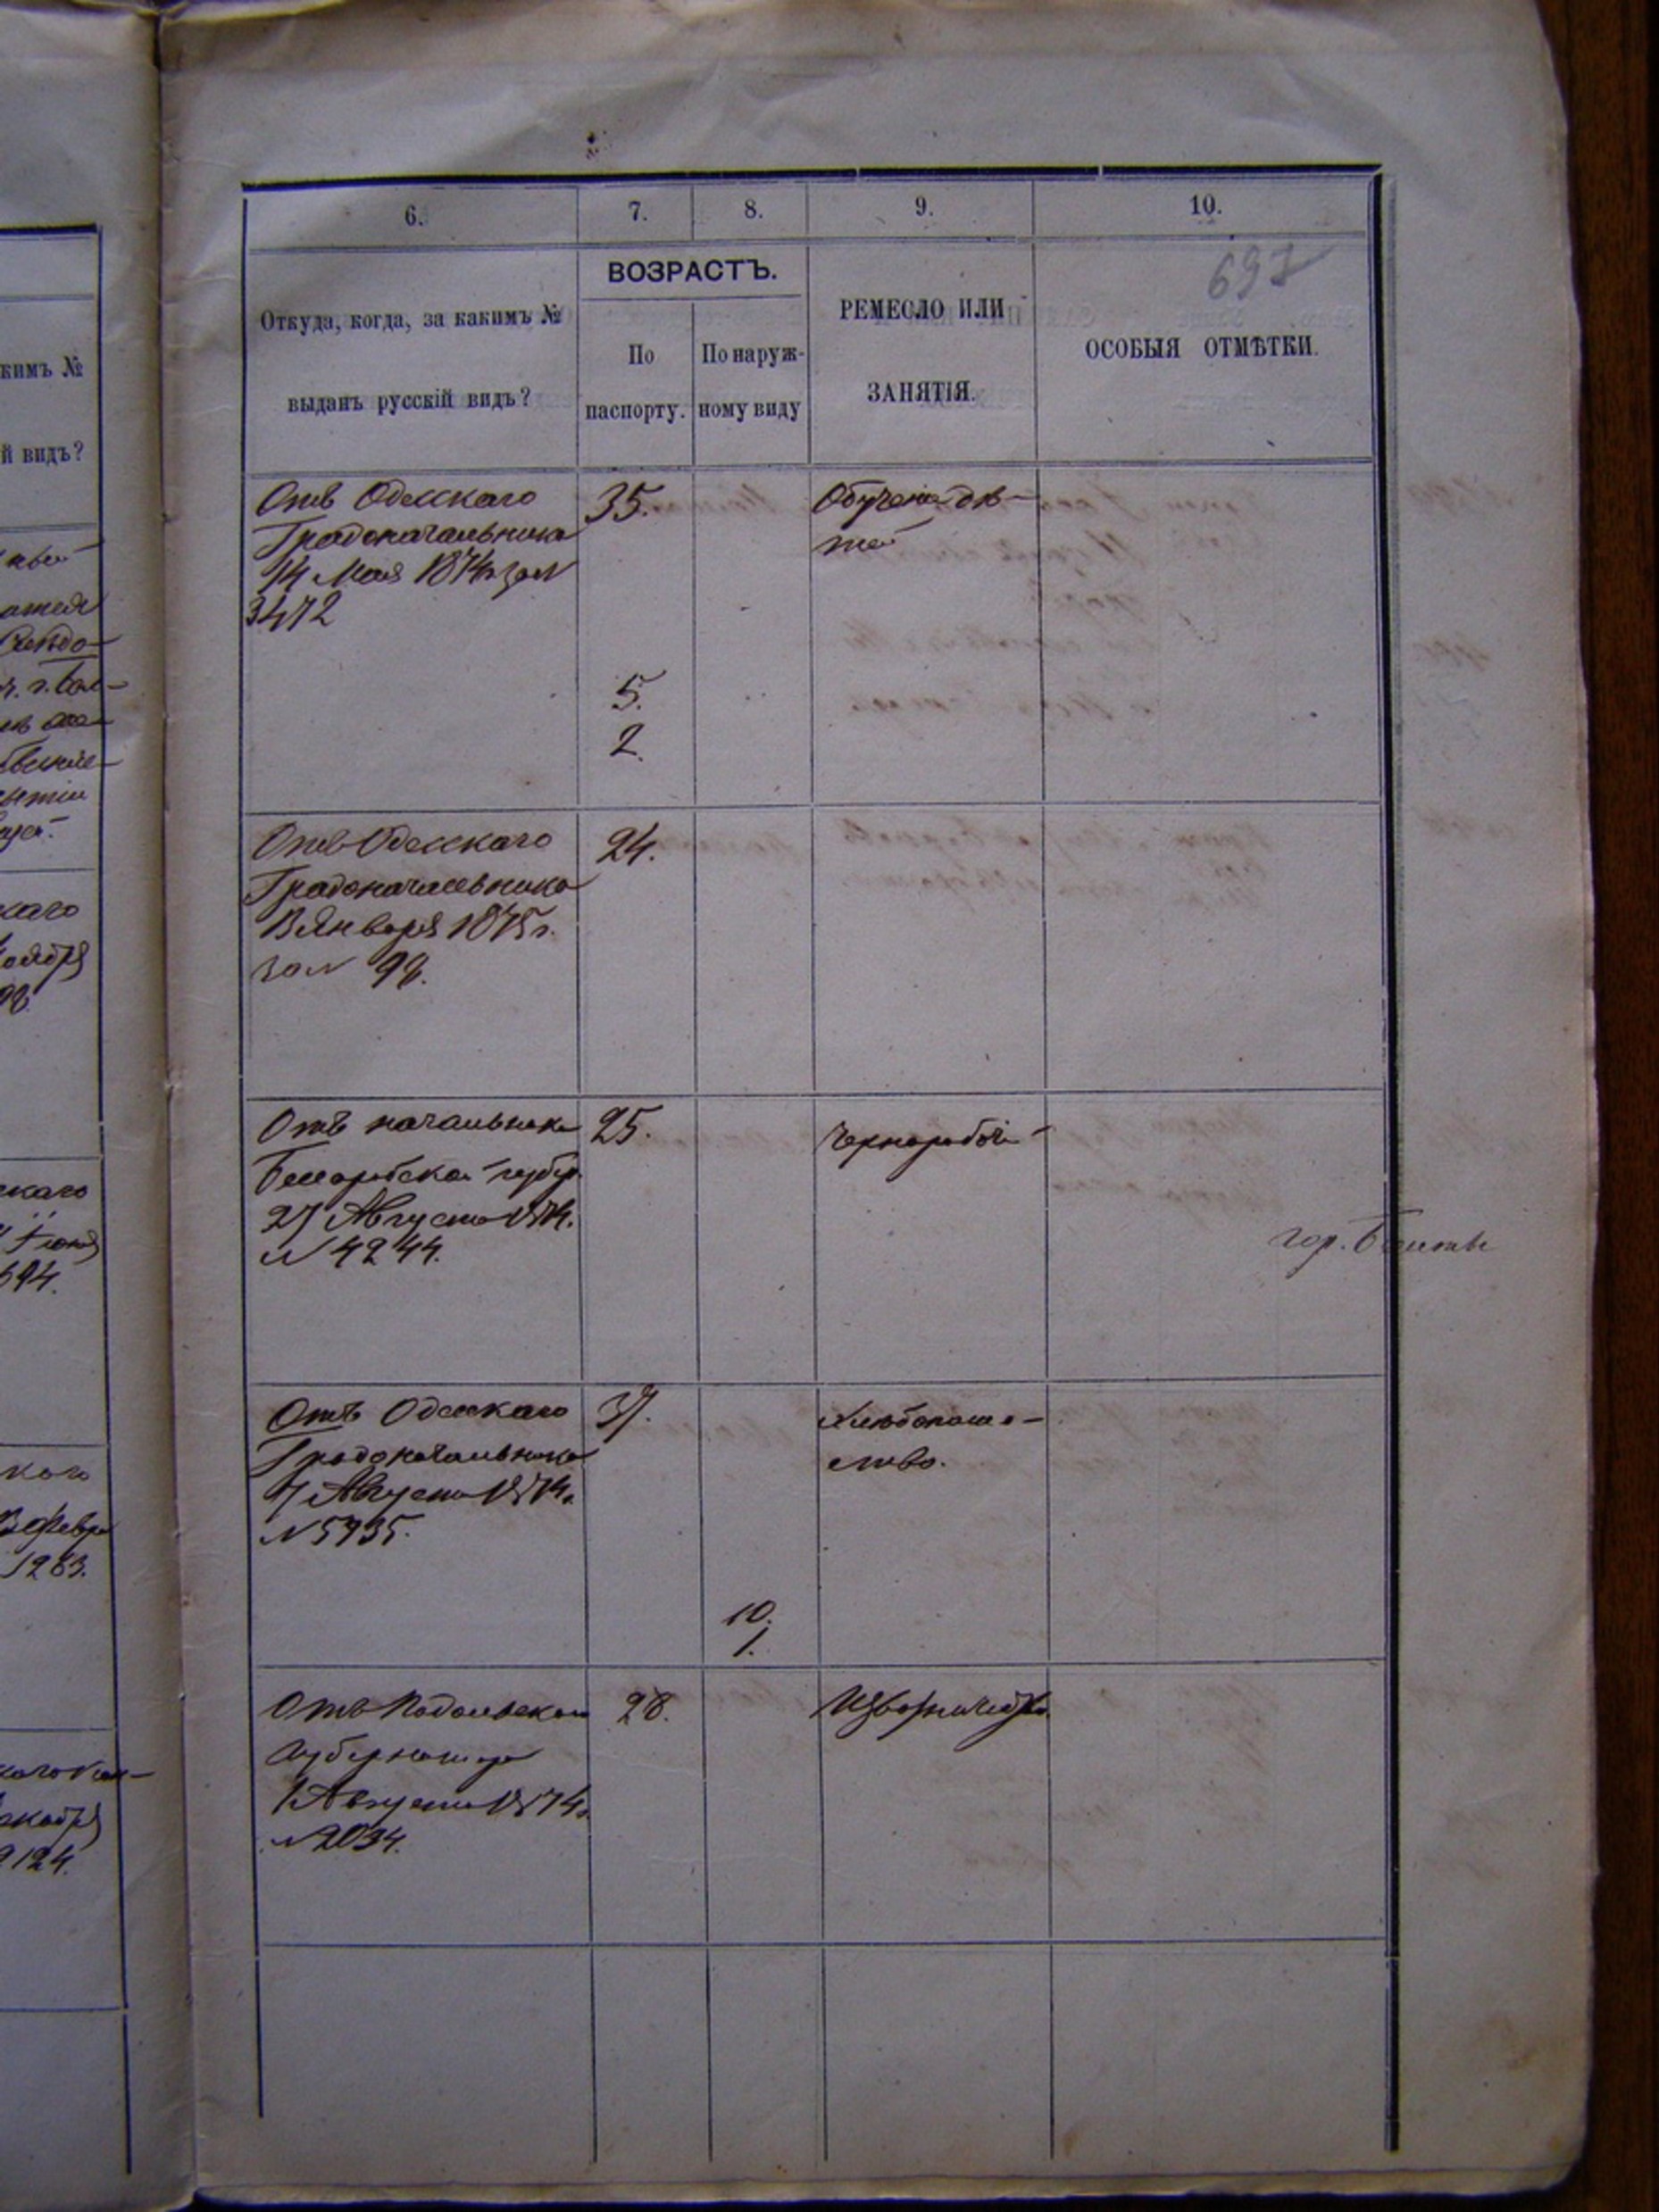 6.
7.
8.
9.
10.
697
Откуда, когда, за какимъ №
выданъ русскій видъ?
ВОЗРАСТЪ.
По
паспорту.
По наруж-
ному виду
РЕМЕСЛО ИЛИ
ЗАНЯТІЯ.
ОСОБЫЯ ОТМѢТКИ.
кимъ №
й видъ?
Отъ Одесскаго
Градоначальника
14 Мая 1874 г. за №
3472
35.
5.
2.
Обученіе дѣ-
тей
Отъ Одесскаго
Градоначальника
Января 1875 г.
за № 98.
24.
Отъ начальника
Бессарабской губер.
27 Августа 1874.
№ 4244.
25.
Чернорабочій
гор. Балты
Отъ Одесскаго
Градоначальника
7 Августа 1874 г.
№ 5935.
37.
10.
1.
Хлебопаше-
ство.
Отъ Подольскаго
Губернатора
1 Августа 1874 г.
№ 2034.
28.
Извозничество.
каго
ноября
98
каго
Іюня
694.
кого
3 Февр
1283.
декабря
2124.